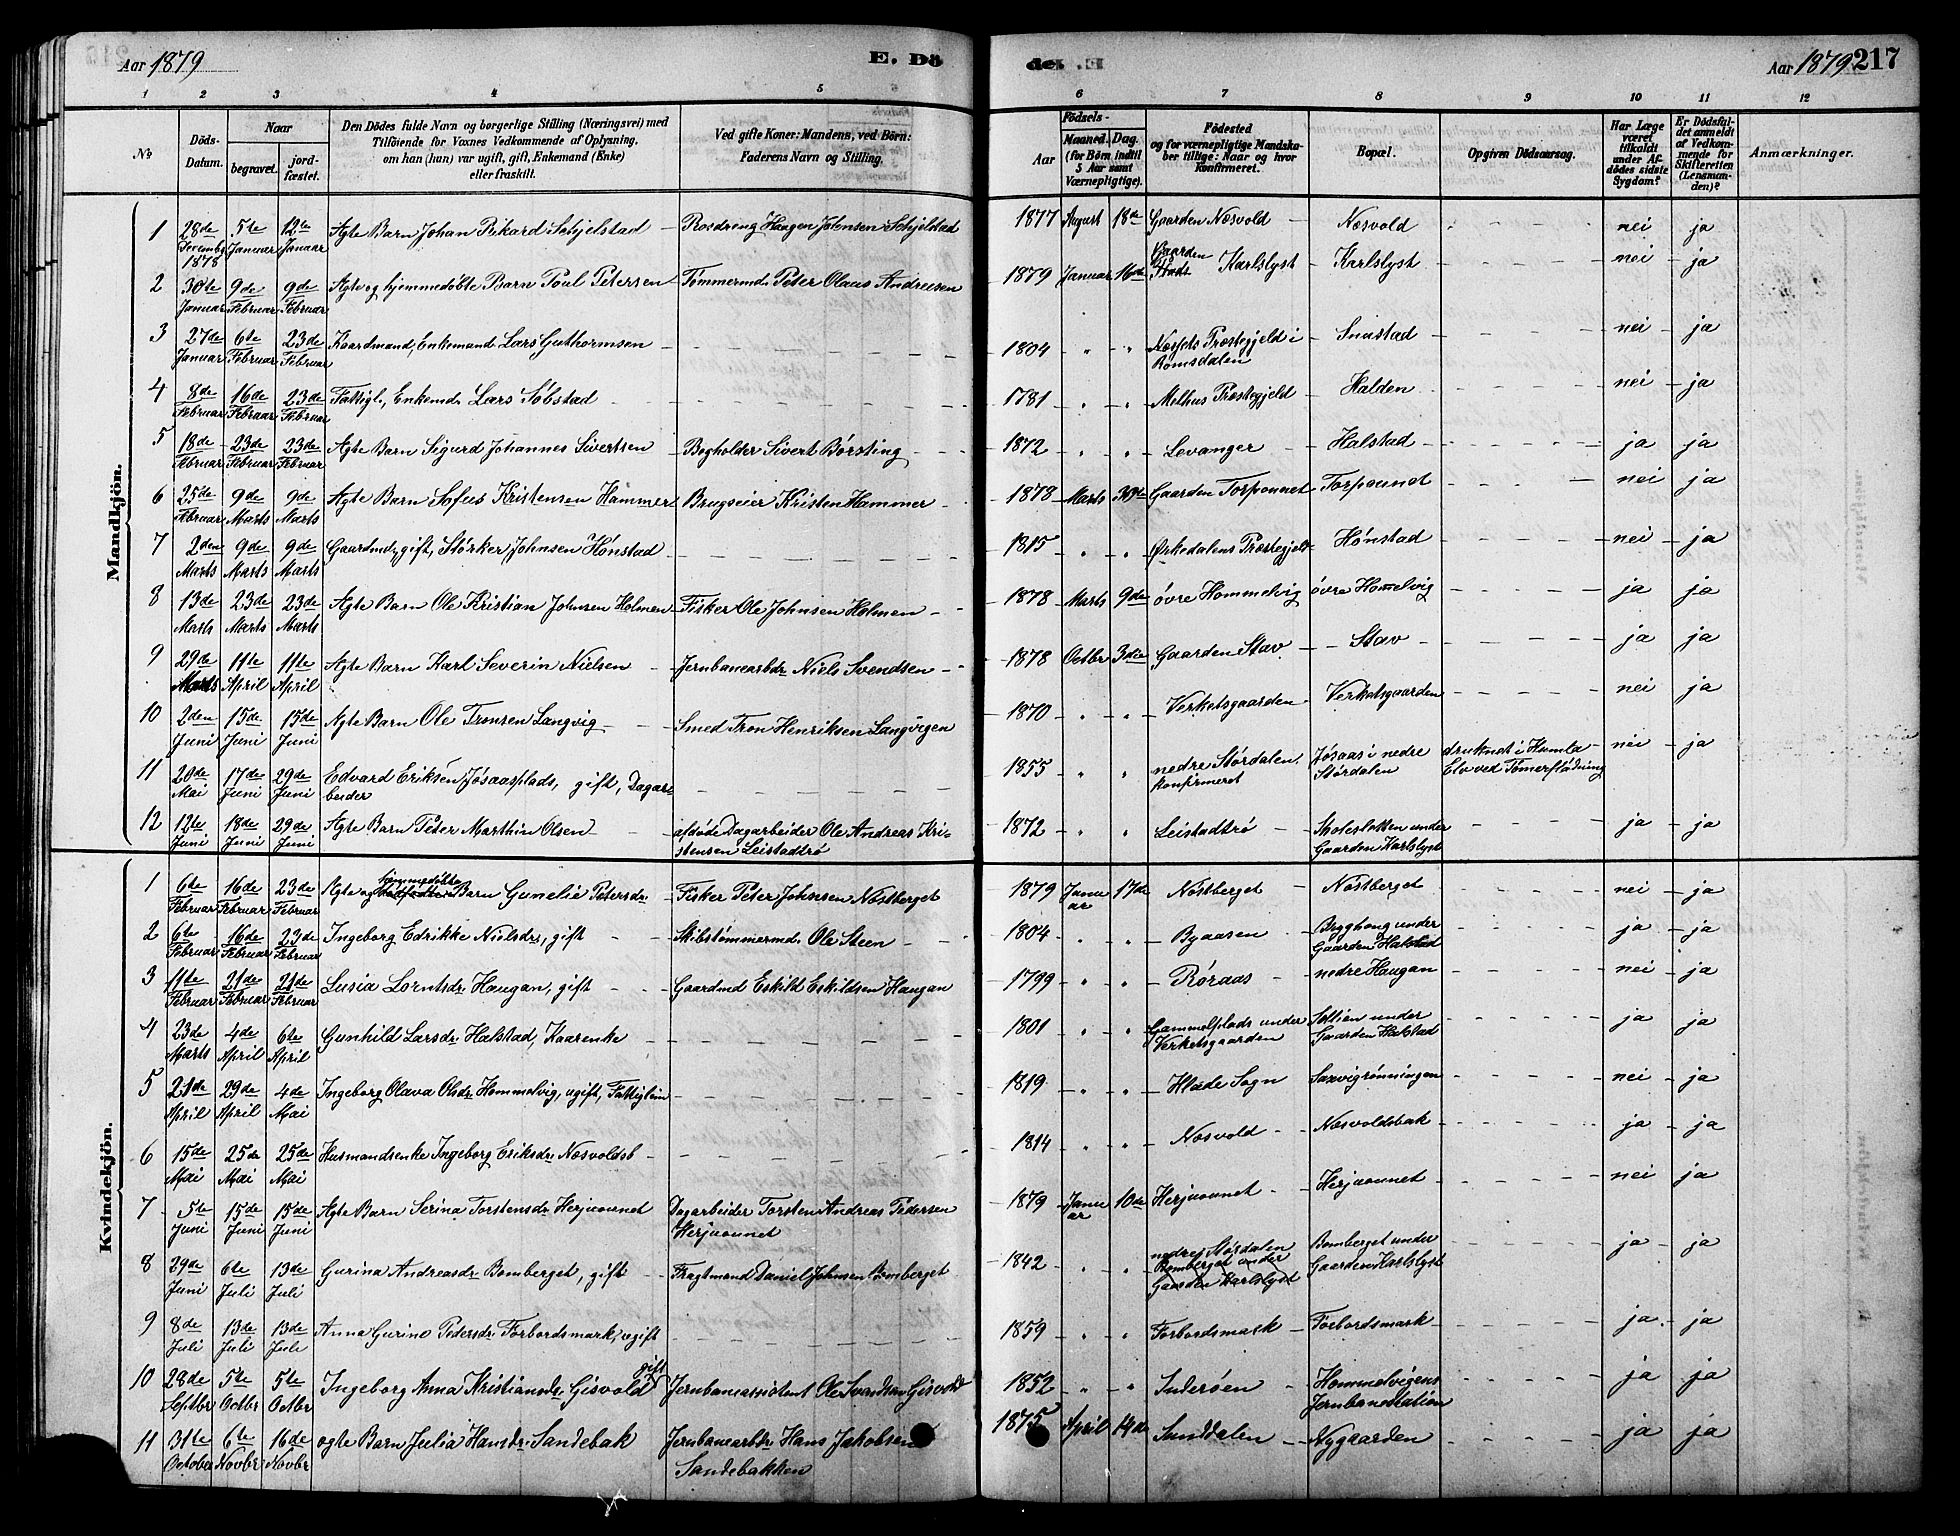 Aar 1879
E. Dö
den E.
Aar 1879 217
1 2 3 4 5 6 7 8 9 10 11 12
No
Döds-Datum.
Naar
begravet.
jordfæstet.
Den Dödes fulde Navn og borgerlige Stilling (Næringsvei) med
Tilföiende for Voxnes Vedkommende af Oplysning,
om han (hun) var ugift, gift, Enkemand (Enke)
eller fraskilt.
Ved gifte Koner: Mandens, ved Börn:
Faderens Navn og Stilling.
Födsels-
Aar
Maaned. Dag.
(for Börn indtil
5 Aar samt
Værnepligtige).
Födested
og for værnepligtige Mandskaber tillige: Naar og hvor
konfirmeret.
Bopæl.
Opgiven Dödsaarsag.
Har Læge
været
tilkaldt
under Afdödes sidste
Sygdom?
Er Dödsfaldet anmeldt
af Vedkommende for
Skifteretten
(Lensmanden)?
Anmærkninger.
Mandkjön.
1 28de Decembr 1878 5te Januar 12te Januar Ægte Barn Johan Rikard Schjelstad Roedreng Haagen Johnsen Schjelstad 1877 August 18de Gaarden Næsvold Næsvold nei ja
2 30te Januar 9de Februar 9de Februar Ægte og hjemmedøbte Barn Poul Petersen Tømmermd. Peter Olaus Andresen 1879 Januar 16de Gaarden Karlslyst Karlslyst nei ja
3 27de Januar 6te Februar 23de Februar Kaardmand, Enkemand Lars Guthormsen 1804 " " Næssets Præstegjeld i Romsdalen Smistad nei ja
4 8de Februar 16de Februar 23de Februar Fattigl., Enkemd. Lars Søbstad 1781 " " Melhus Præstegjeld Halden nei ja
5 18de Februar 23de Februar 23de Februar Ægte Barn Sigurd Johannes Sivertsen Bogholder Sivert Børsting 1872 " " Levanger Halstad ja ja
6 25de Februar 9de Marts 9de Marts Ægte Barn Sofus Kristensen Hammer Brugseier Kristen Hammer 1878 Marts 30te Gaarden Torpounet Torpounet nei ja
7 2den Marts 9de Marts 9de Marts Gaardmd., gift, Størker Johnsen Hønstad 1815 " " Ørkedalens Præstegjeld Hønstad nei ja
8 13de Marts 23de Marts 23de Marts Ægte Barn Ole Kristian Johnsen Holmen Fisker Ole Johnsen Holmen 1878 Marts 9de øvre Hommelvig øvre Homelvig ja ja
9 29de Marts 11te April 11te April Ægte Barn Karl Severin Nielsen Jernbanearbdr. Niels Svendsen 1878 Octbr 3die Gaarden Stav Stav ja ja
10 2den Juni 15de Juni 15de Juni Ægte Barn Ole Tronsen Langvig Smed Tron Henriksen Langvigen 1870 " " Verketsgaarden Verketsgaarden nei ja
11 20de Mai 17de Juni 29de Juni Edvard Eriksen Jøsaasplads, gift, Dagarbeider 1855 " " nedre Stördalen, konfirmeret Jøsaas i nedre Stördalen druknet i Humla Elv ved Tømerflødning nei ja
12 12te Juni 18de Juni 29de Juni Ægte Barn Peter Marthin Olsen afdøde Dagarbeider Ole Andreas Kristensen Leistadtrø 1872 " " Leistadtrø under Gaarden Karlslyst ja ja
Kvindekjön.
1 6te Februar 16de Februar 23de Februar Ægte og hjemmedøbte Barn Gunelie Petersdr. Fisker Peter Johnsen Næstberget 1879 Januar 17de Næstberget Næstberget nei ja
2 6te Februar 16de Februar 23de Februar Ingeborg Edrikke Nielsdr., gift Skibstømmermd. Ole Steen 1804 " " Byaasen under Gaarden Halstad ja ja
3 11te Februar 21de Februar 21de Februar Lusia Lorntsdr. Haugan, gift Gaardmd Eskild Eskildsen Haugan 1799 " " Røraas nedre Haugan nei ja
4 23de Marts 4de April 6te April Gunhild Larsdr. Halstad, Kaarenke 1801 " " Gammelplads under Verketsgaarden under Gaarden Halstad ja ja
5 21de April 29de April 4de Mai Ingeborg Olava Olsdr. Hommelvig, ugift, Fattiglem 1819 " " Hlade Sogn Saxvigrønningen nei ja
6 15de Mai 25de Mai 25de Mai Husmandsenke Ingeborg Eriksdr. Næsvoldsb 1814 " " Næsvold Næsvoldsbak ja ja
7 5te Juni 15de Juni 15de Juni Ægte Barn Serina Torstensdr. Herjuounet Dagarbeider Torsten Andreas Pedersen Herjuounet 1879 Januar 10de Herjuounet Herjuounet nei ja
8 29de Juni 6te Juli 13de Juli Gurina Andreasdr. Bomberget, gift Fragtmand Daniel Johnsen Bomberget 1842 " " nedre Stördalen Bomberget under Gaarden Karlslyst Bomberget under Gaarden Karlslyst ja ja
9 8de Juli 13de Juli 13de Juli Anna Gurine Pedersdr. Forbordsmark, ugift 1859 " " Forbordsmark Forbordsmark ja ja
10 28de Septbr 5te Octbr 5te Octbr Ingeborg Anna Kristiansdr. Gisvold gift Jernbaneassistent Ole Svendsen Gisvold 1852 " " Inderøen Hommelvigens Jernbanestation ja ja
11 31te October 6te Novbr 16de Novbr ægte Barn Julia Hansdr. Sandebak Jernbanearbdr. Hans Jakobsen Sandebakken 1875 April 14de Sunddalen Nygaarden ja ja